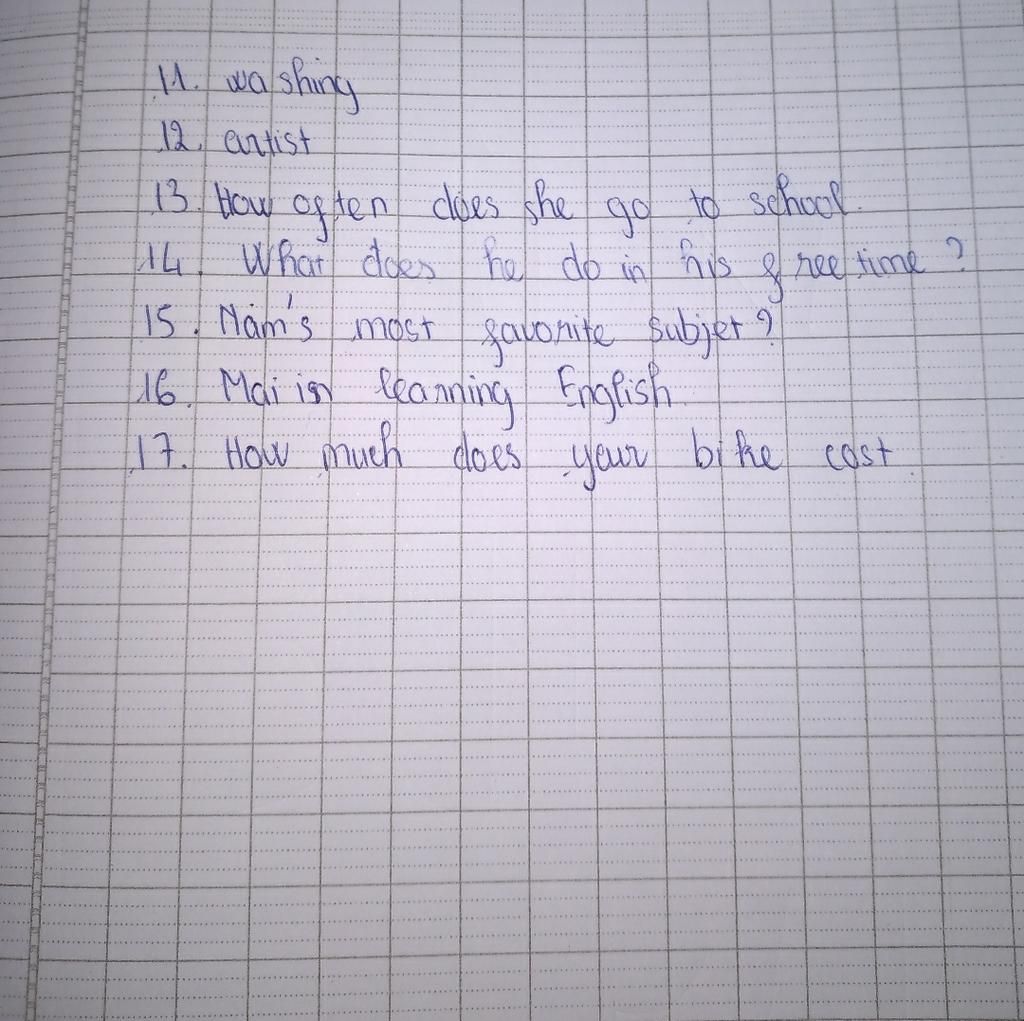 11. washing
12. artist
13. How often does she go to school.
14. What does he do in his free time ?
15. Nam's most favorite subjet ?
16. Mai is learning English
17. How much does your bike cost